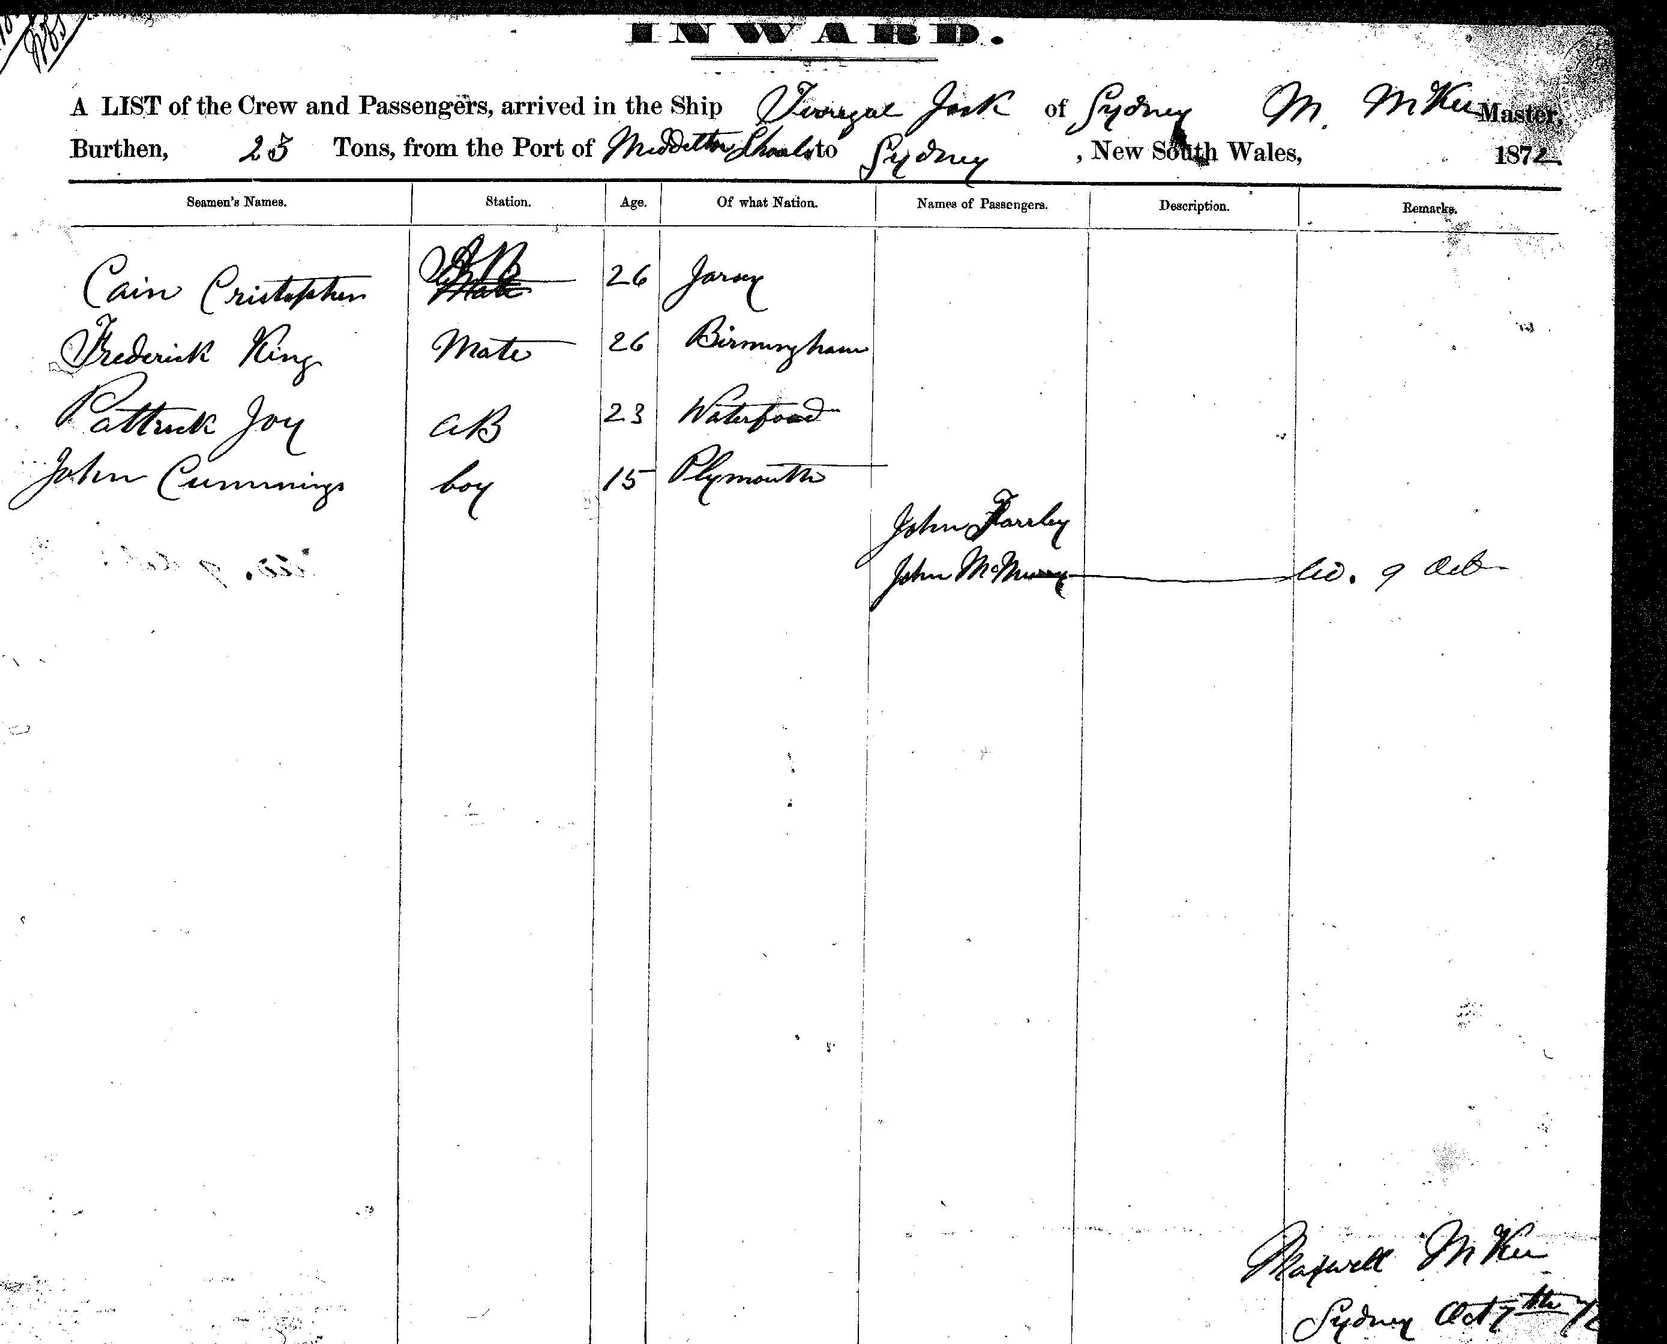 INWARD.
A LIST of the Crew and Passengers, arrived in the Ship Terregal Jack of Sydney M. McKee Master,
Burthen, 25 Tons, from the Port of Middelton Shoals to Sydney, New South Wales, 1872
Seamen's Names. Station. Age. Of what Nation. Names of Passengers. Description. Remarks.
Cain Cristopher AB Mate 26 Jarsey
Frederick King Mate 26 Birmingham
Pattrick Joy AB 23 Waterford
John Cummings boy 15 Plymouth
John Farrley
John McMurray 9 Oct
Maxwell McKee
Sydney Oct 7th 72